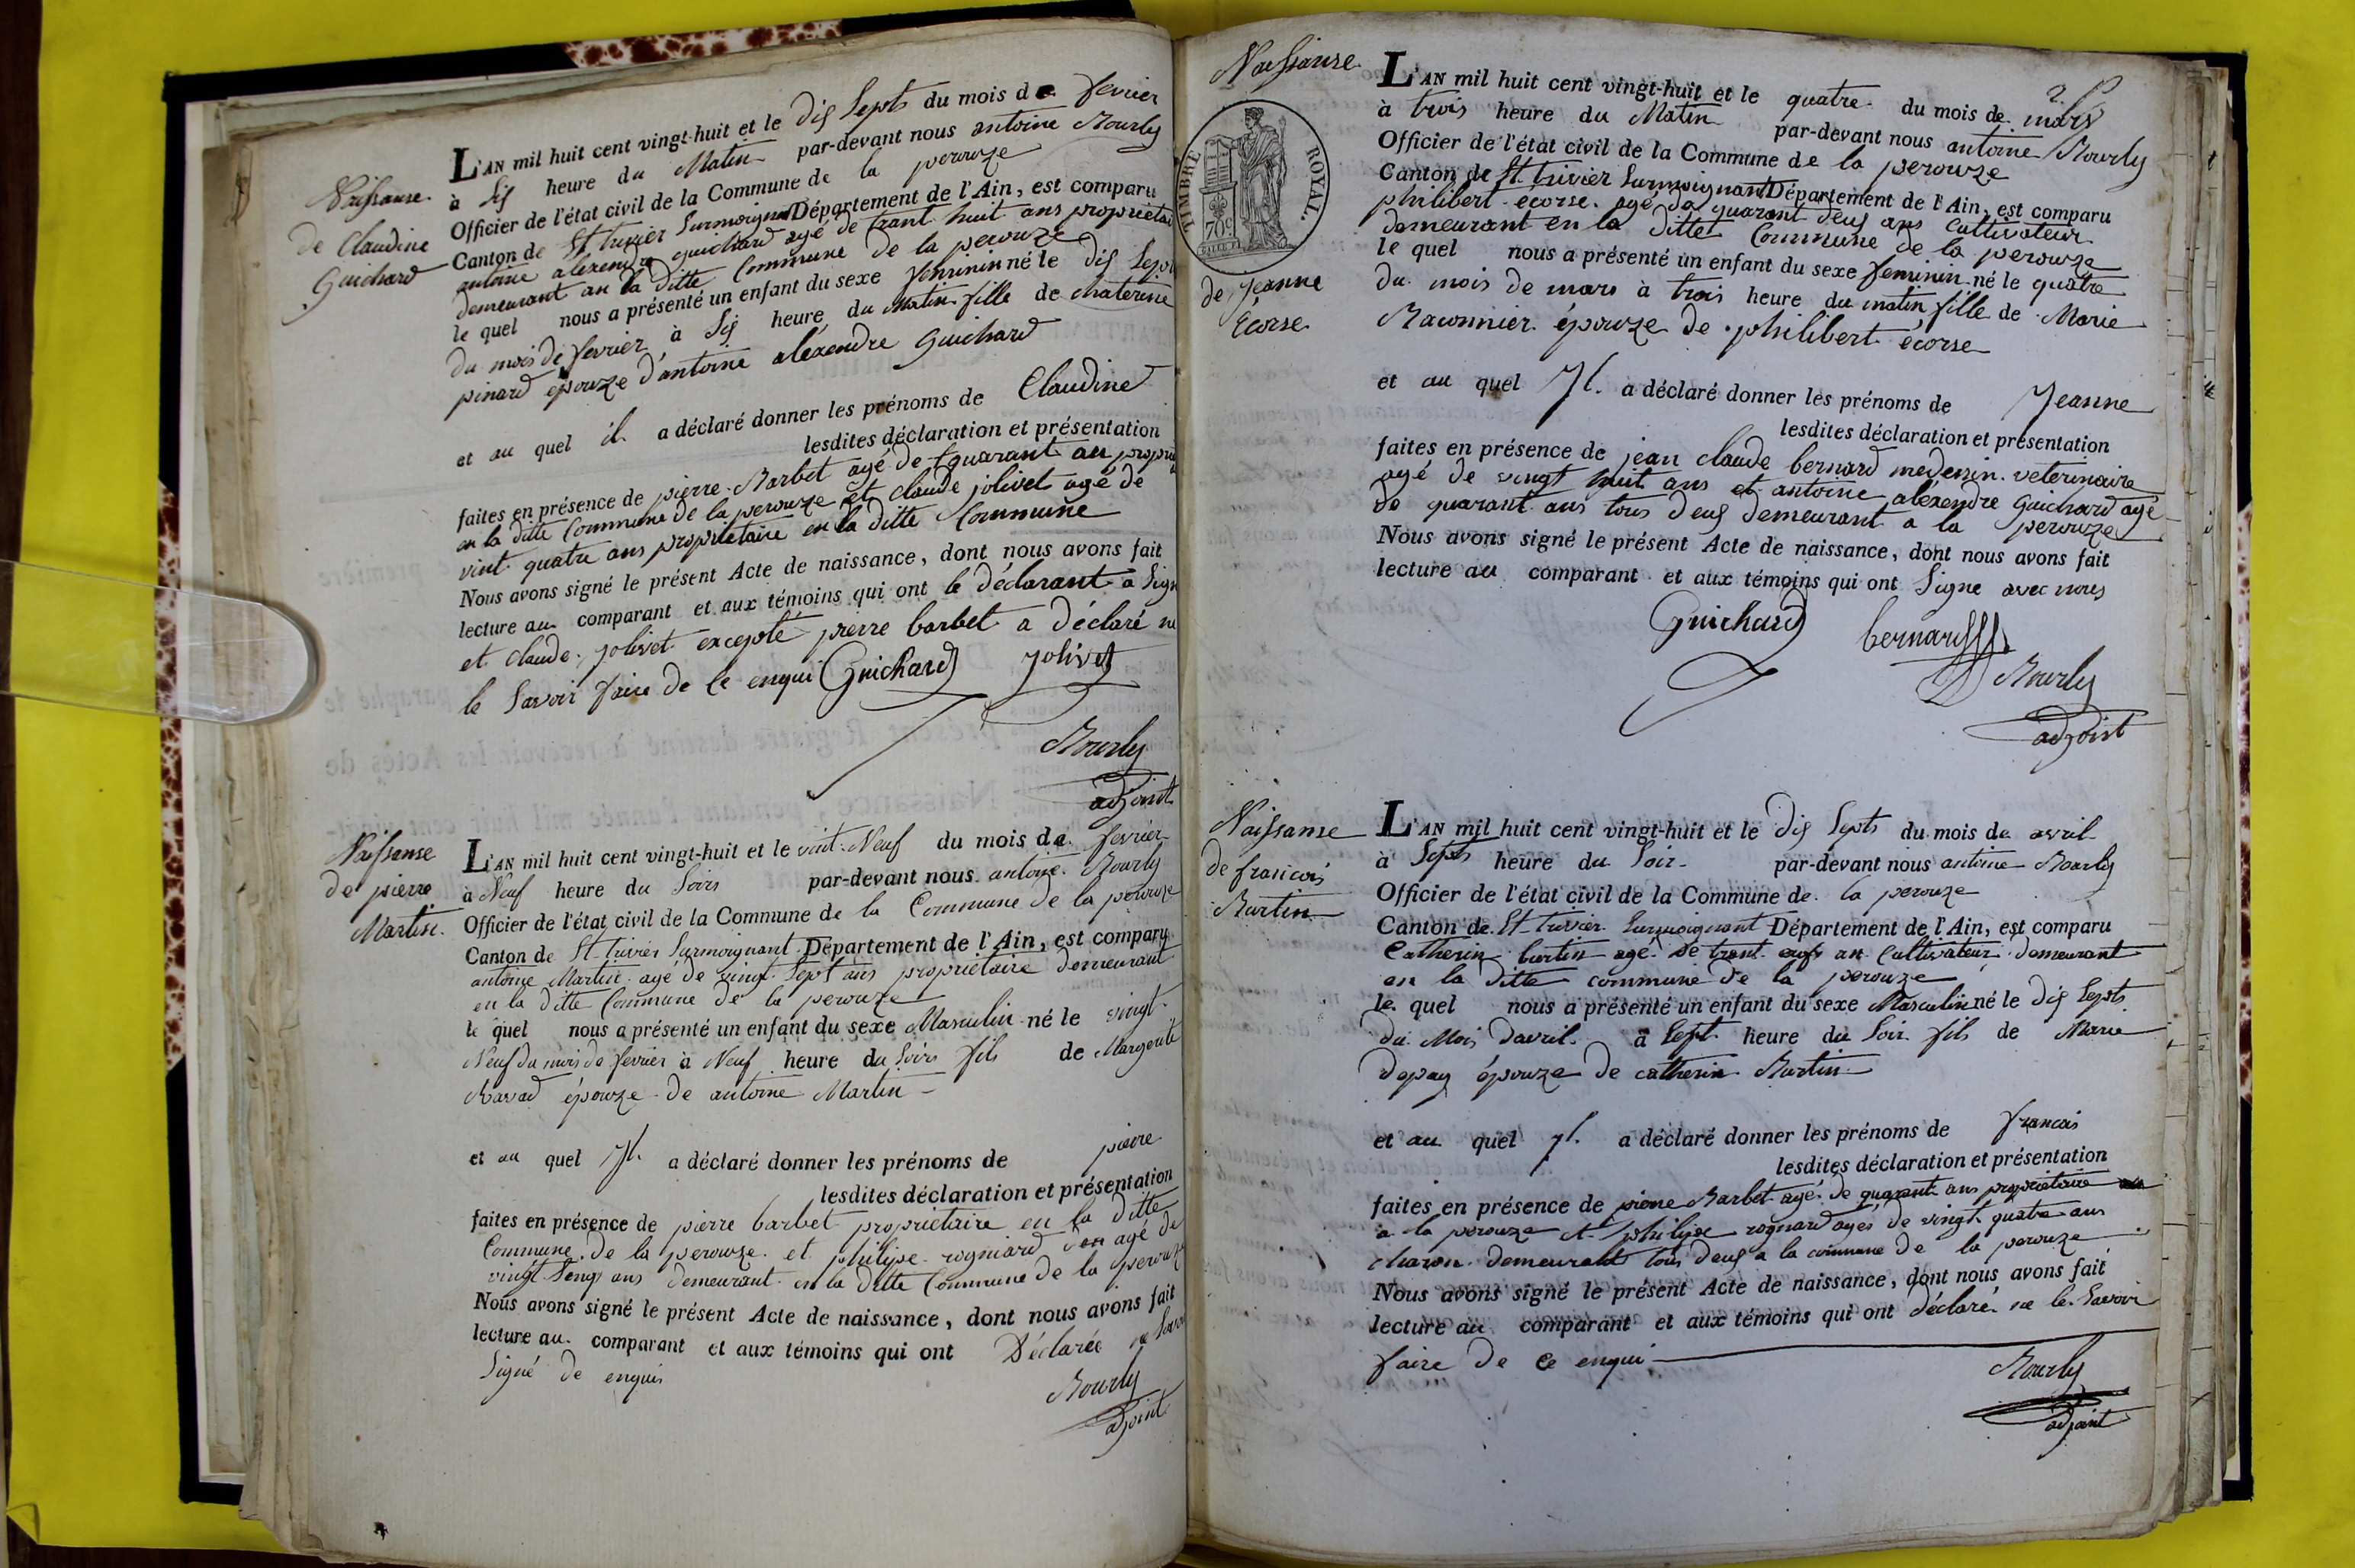 Naissanse
de Claudine
Guichard
L'AN mil huit cent vingt-huit et le dis septs du mois de fevrier
à sis heure du Matin par-devant nous antoine Bourly
Officier de l'état civil de la Commune de la perouze
Canton de St trivier surmoignant Département de l'Ain, est comparu
antoine alexendre guichard agé de trant huit ans proprietai
demeurant an la ditte Commune de la perouze
le quel nous a présenté un enfant du sexe feminin né le dis septs
du mois de fevrier à sis heure du matin fille de chaterine
pinard épouze d'antoine aléxendre Guichard
et au quel il a déclaré donner les prénoms de Claudine
lesdites déclaration et présentation
faites en présence de pierre Barbet agé de quarant an proprie
en la ditte Commune de la perouze et claude jolivet agé de
vint quatre ans propriétaire en la ditte Commune
Nous avons signé le présent Acte de naissance, dont nous avons fait
lecture au comparant et aux témoins qui ont le déclarant a sign
et claude jolivet excepté pierre barbet a déclaré ne
le savoir faire de ce enqui Guichard jolivet
Bourly
adjoint
Naissanse
de pierre
Martin.
L'AN mil huit cent vingt-huit et le vint Neuf du mois de fevrier
à Neuf heure du soirs par-devant nous antoine Bourly
Officier de l'état civil de la Commune de la Commune de la perouze
Canton de St trivier surmoignant Département de l'Ain, est comparu
antoine Martin agé de vingt sept ans propriétaire demeurant
en la ditte Commune de la perouze
le quel nous a présenté un enfant du sexe Masculin né le vingt
Neuf du mois de fevrier à Neuf heure du soirs fils de Margerite
Ravad épouze de antoine Martin
et au quel Jl. a déclaré donner les prénoms de pierre
lesdites déclaration et présentation
faites en présence de pierre barbet propriétaire en la ditte
Commune de la perouze et philipe rogniard agé de
vingt ans demeurant en la ditte Commune de la perouze
Nous avons signé le présent Acte de naissance, dont nous avons fait
lecture au comparant et aux témoins qui ont Déclarée ne savoir
signé de enquis
Bourly
adjoint
Naissanse
TIMBRE ROYAL.
de jeanne
Ecorse
2.
L'AN mil huit cent vingt-huit et le quatre du mois de mars
à trois heure du Matin par-devant nous antoine Bourly
Officier de l'état civil de la Commune de la perouze
Canton de St trivier surmoignant Département de l'Ain, est comparu
philibert écorse agé de quarant deus ans Cultivateur
demeurant en la ditte Commune de la perouze
le quel nous a présenté un enfant du sexe feminin né le quatre
du mois de mars à trois heure du matin fille de Marie
Raconnier épouze de philibert écorse
et au quel Jl. a déclaré donner les prénoms de Jeanne
lesdites déclaration et présentation
faites en présence de jean claude bernard medecin veterinaire
agé de vingt huit ans et antoine aléxendre Guichard agé
de quarant ans tous deus demeurant a la perouze
Nous avons signé le présent Acte de naissance, dont nous avons fait
lecture au comparant et aux témoins qui ont signe avec nous
Guichard bernard
Bourly
adjoint
Naissanse
de francois
Burtin
L'AN mil huit cent vingt-huit et le dis septs du mois de avril
à septs heure du soir par-devant nous antoine Bourly
Officier de l'état civil de la Commune de la perouze
Canton de St trivier surmoignant Département de l'Ain, est comparu
Catherin burtin agé de trent an Cultivateur demeurant
en la ditte commune de la perouze
le quel nous a présenté un enfant du sexe Masculin né le dis septs
du Mois d'avril à sept heure du soir fils de Marie
depay épouze de catherin Burtin
et au quel Jl. a déclaré donner les prénoms de francois
lesdites déclaration et présentation
faites en présence de pierre Barbet agé de quarant ans propriétaire
a la perouze et philipe rognard agés de vingt quatre ans
charon demeurant tous deus a la commune de la perouze
Nous avons signé le présent Acte de naissance, dont nous avons fait
lecture au comparant et aux témoins qui ont déclaré ne le savoir
faire de ce enqui
Bourly
adjoint